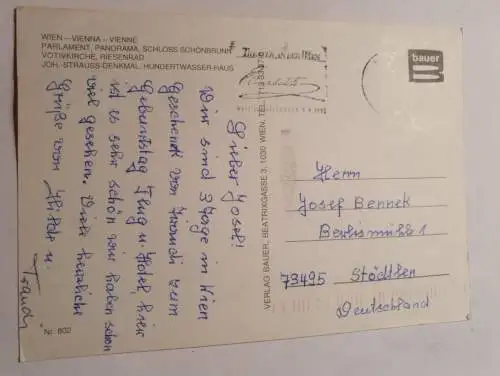 WIEN – VIENNA – VIENNE
PARLAMENT, PANORAMA, SCHLOSS SCHÖNBRUNN
VOTIVKIRCHE, RIESENRAD
JOH.-STRAUSS-DENKMAL, HUNDERTWASSER-HAUS
Lieber Josef!
Wir sind 3 Tage in Wien
Geschenk von Traudi zum
Geburtstag Flug u. Hotel, hier
ist es sehr schön wir haben schon
viel gesehen. Viele herzliche
Grüße von Hilde u.
Traudi
Nr. 802
VERLAG BAUER, BEATRIXGASSE 3, 1030 WIEN, TEL.
bauer
Herrn
Josef Bennek
1
73495 Stödtlen
Deutschland